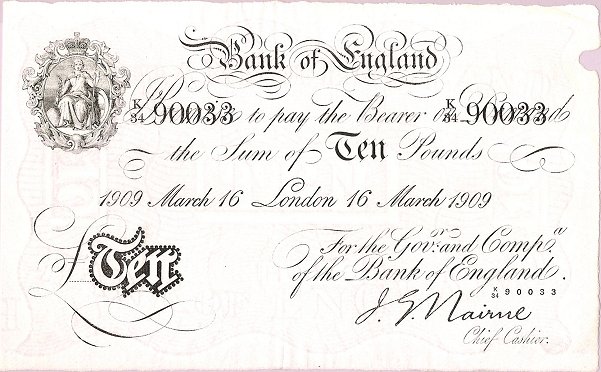 Bank of England
I Promise to pay the Bearer on Demand
K/34 90033 K/34 90033
the Sum of Ten Pounds
1909 March 16 London 16 March 1909
For the Govr. and Compa.
of the Bank of England.
K/34 90033
£Ten
J. G. Nairne
Chief Cashier.